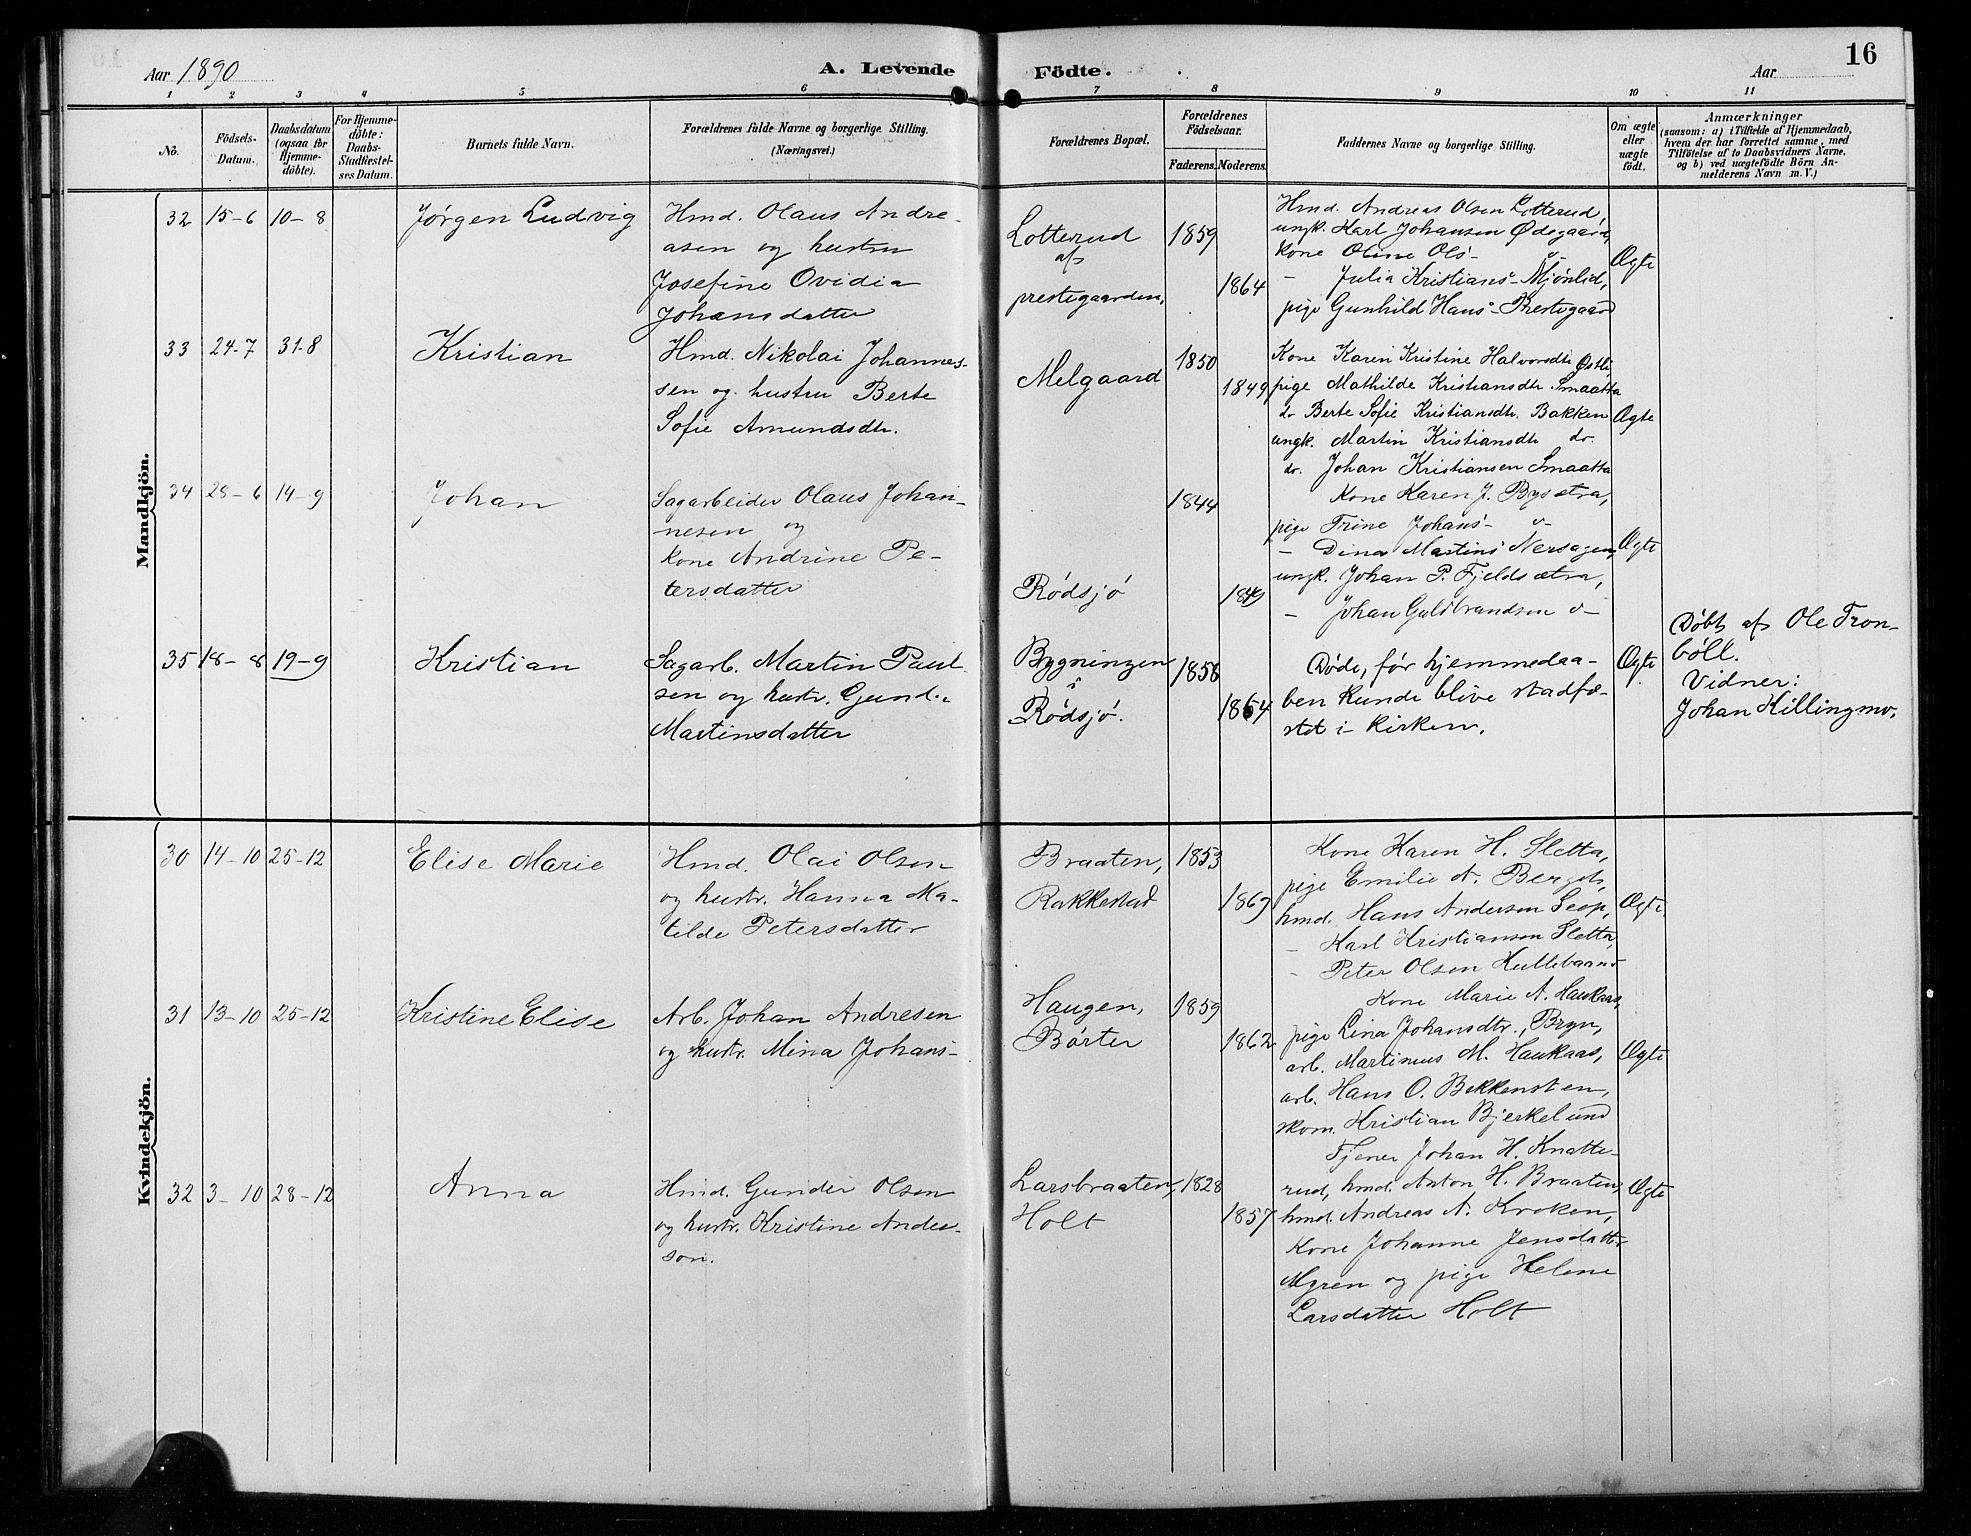 Aar 1890
A. Levende Födte.
Aar
16
1 2 3 4 5 6 7 8 9 10 11
No.
Födsels-
Datum.
Daabsdatum
(ogsaa for
Hjemme-
döbte).
For Hjemme-
döbte:
Daabs-
Stadfæstel-
ses Datum.
Barnets fulde Navn.
Forældrenes fulde Navne og borgerlige Stilling.
(Næringsvei.)
Forældrenes Bopæl.
Forældrenes
Födselsaar.
Faderens. Moderens.
Faddernes Navne og borgerlige Stilling.
Om ægte
eller
uægte
födt.
Anmærkninger
(saasom: a) i Tilfælde af Hjemmedaab,
hvem der har forrettet samme, med
Tilföielse af to Daabsvidners Navne.
og b) ved uægtefödte Börn An-
melderens Navn m. V.)
Mandkjön.
32 15-6 10-8
Jørgen Ludvig
Hmd. Olaus Andre-
asen og hustru
Josefine Ovidia
Johansdatter
Lotterud
af
prestegaarden,
1859
1864
Hmd. Andreas Olsen Lotterud,
ungk. Karl Johansen Ødegaard,
kone Oline Ols-
- Julia Kristians- Mjønlid,
pige Gunhild Hans- Prestegaard
Ægte
33 24-7 31-8
Kristian
Hmd. Nikolai Johannes-
sen og hustru Berte
Sofie Amundsdtr.
Melgaard
1850
1849
Kone Karen Kristine Halvorsdtr Østli,
pige Mathilde Kristiansdtr. Smaatta
do Berte Sofie Kristiansdtr. Bakken
ungk. Martin Kristiansdtr do.
do. Johan Kristiansen Smaatta
Ægte
34 28-6 14-9
Johan
Sagarbeider Olaus Johan-
nesen og
kone Andrine Pe-
tersdatter
Rødsjø
1844
1849
Kone Karen J. Bysætra,
pige Trine Johans- v-
- Dina Martins' Nersagen,
ungk. Johan P. Fjeldsætra,
- Johan Guldbrandsen v-
Ægte
35 18-8 19-9
Kristian
Sagarb. Martin Paul-
sen og hustr. Gunda
Martinsdatter
Bygningen
i
Rødsjø.
1858
1864
Døde, før hjemmedaa-
ben kunde blive stadfæ-
stet i kirken.
Ægte
Døbt af Ole Tron-
böll.
Vidner:
Johan Killingmo.
Kvindekjön.
30 14-10 25-12
Elise Marie
Hmd. Olai Olsen
og hustr. Hanna Ma-
tilde Petersdatter
Braaten,
Rakkestad
1853
1869
Kone Karen H. Sletta,
pige Emilie A. Bergh,
hmd. Hans Andersen Seop,
- Karl Kristiansen Sletta,
- Peter Olsen
Ægte
31 13-10 25-12
Kristine Elise
Arb. Johan Andresen
og hustr. Mina Johans-
Haugen,
Børter
1859
1862
Kone Marie A. Haukaas,
pige Lina Johansdtr., Bryn,
arb. Martinus M. Haukaas,
arb. Hans O. Bekkensten,
skom. Kristian Bjerkelund
Ægte
32 3-10 28-12
Anna
Hmd. Gunder Olsen
og hustr. Kristine Ander-
son.
Larsbraaten,
Holt
1828
1857
Tjener Johan H. Knatte-
rud, hmd. Anton H. Braaten,
hmd. Andreas A. Kroken,
Kone Johanne Jensdatter
Myren og pige Helene
Larsdatter Holt
Ægte